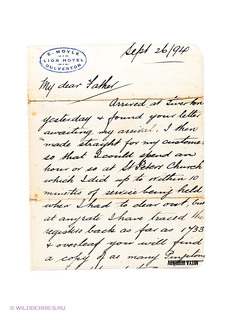 E. MOYLE
LION HOTEL
DULVERTON
Sept 26/94
My dear Father
Arrived at Tiverton
yesterday & found your letter
awaiting my arrival, I then
made straight for my customers
so that I could spend an
hour or so at St Peters Church
which I did up to within 10
minutes of service being held
when I had to clear out, but
at anyrate I have traced the
registers back as far as 1733
& overleaf you will find
a copy of as many
© WILDBERRIES.RU